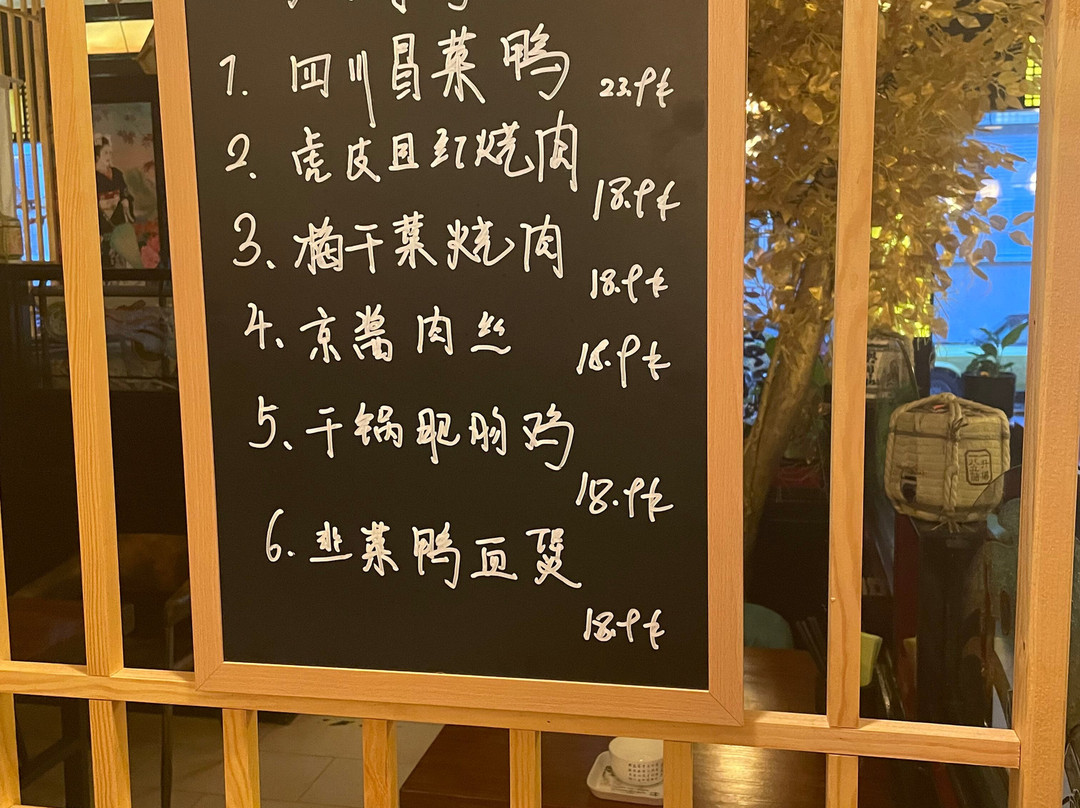 1. 四川冒菜鸭 23.9€
2. 虎皮旦红烧肉 18.9€
3. 梅干菜烧肉 18.9€
4. 京酱肉丝 18.9€
5. 干锅肥肠鸡 18.9€
6. 韭菜鸭豆煲 18.9€